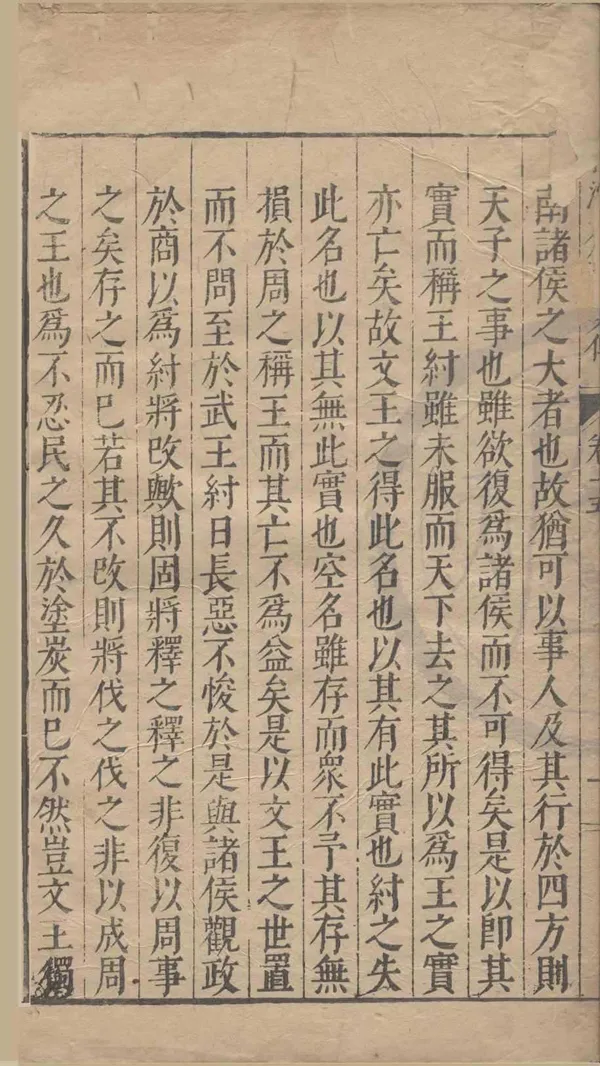 南諸侯之大者也故猶可以事人及其行於四方則
天子之事也雖欲復為諸侯而不可得矣是以卽其
實而稱王紂雖未服而天下去之其所以為王之實
亦亡矣故文王之得此名也以其有此實也紂之失
此名也以其無此實也空名雖存而衆不予其存無
損於周之稱王而其亡不為益矣是以文王之世置
而不問至於武王紂日長惡不悛於是與諸侯觀政
於商以為紂將改歟則固將釋之釋之非復以周事
之矣存之而已若其不改則將伐之伐之非以成周
之王也為不忍民之久於塗炭而已不然豈文王獨